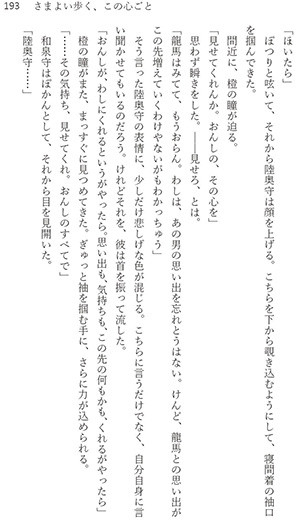 193　さまよい歩く、この心ごと
「ほいたら」
　ぽつりと呟いて、それから陸奥守は顔を上げる。こちらを下から覗き込むようにして、寝間着の袖口
を掴んできた。
　間近に、橙の瞳が迫る。
「見せてくれんか。おんしの、その心を」
　思わず瞬きをした。――見せろ、とは。
「龍馬はみてて、もうおらん。わしは、あの男の思い出を忘れとうはない。けんど、龍馬との思い出が
この先増えていくわけやないがもわかっちゅう」
　そう言った陸奥守の表情に、少しだけ悲しげな色が混じる。こちらに言うだけでなく、自分自身に言
い聞かせてもいるのだろう。けれどそれを、彼は首を振って流した。
「おんしが、わしにくれるというがやったら。思い出も、気持ちも、この先の何もかも、くれるがやったら」
　橙の瞳がまた、まっすぐに見つめてきた。ぎゅっと袖を掴む手に、さらに力が込められる。
「……その気持ち、見せてくれ。おんしのすべてで」
　和泉守はぽかんとして、それから目を見開いた。
「陸奥守……」